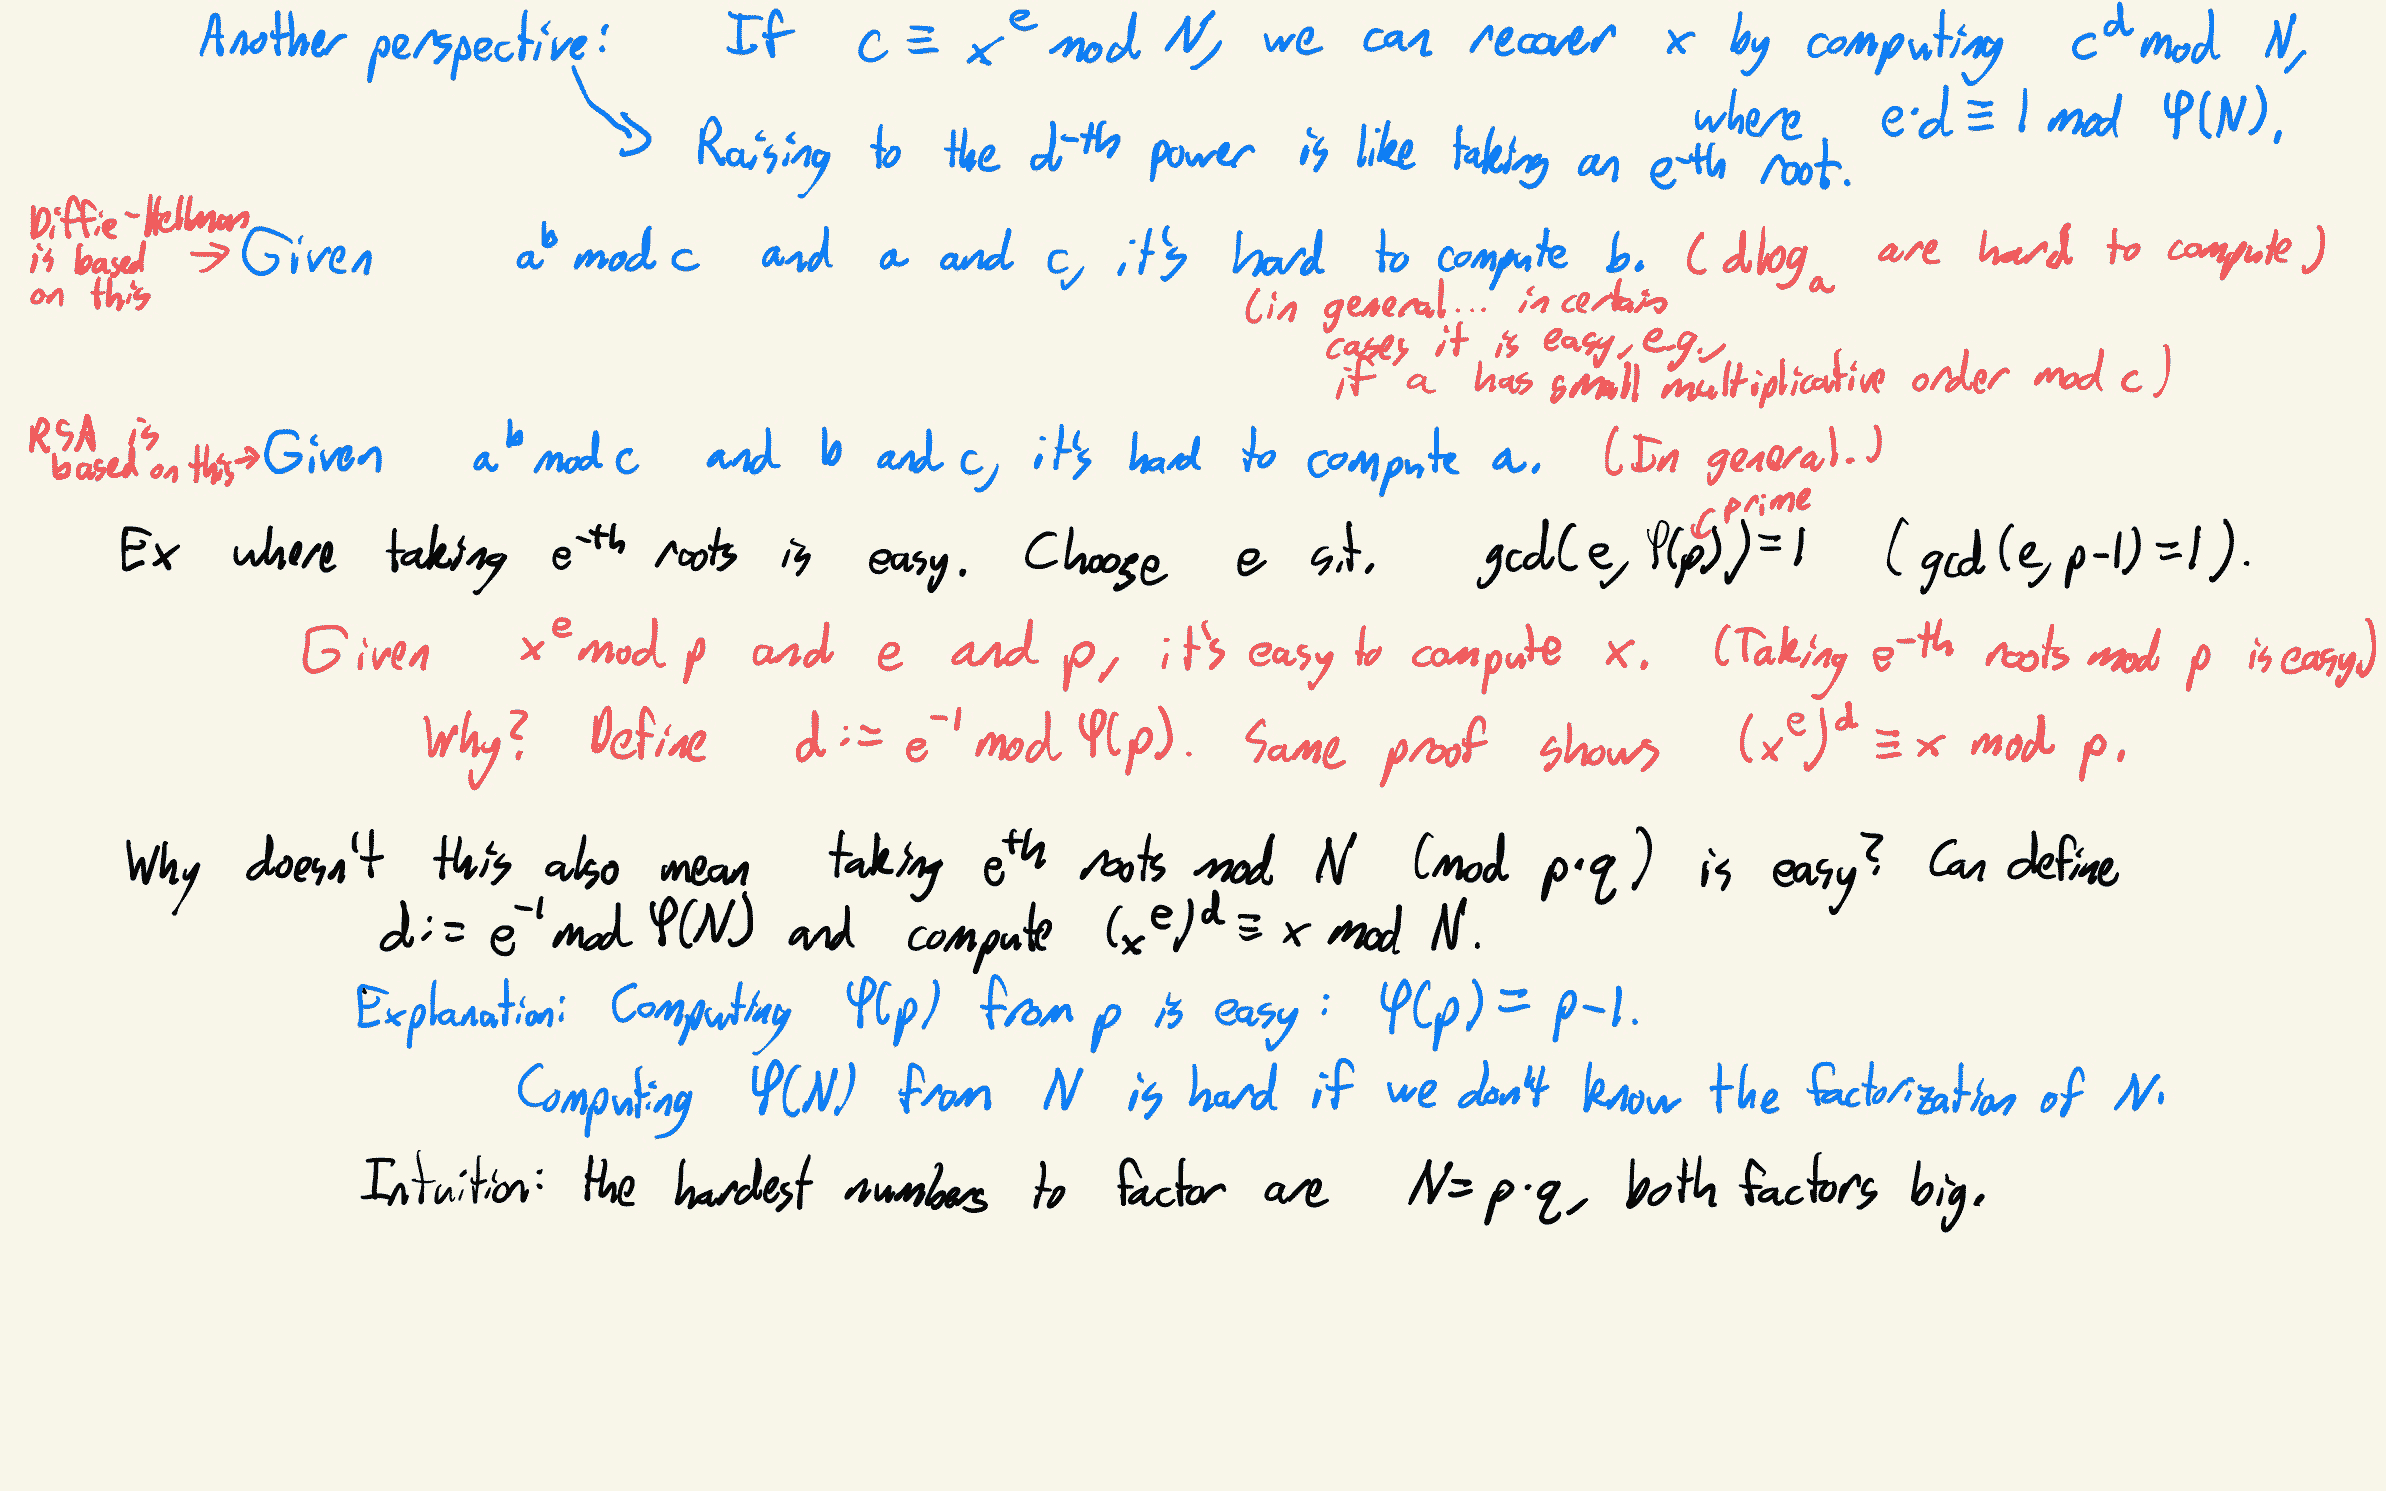 Another perspective: If c ≡ x^e mod N, we can recover x by computing c^d mod N,
where e·d ≡ 1 mod φ(N).
Raising to the d^-th power is like taking an e^-th root.
Diffie-Hellman
is based
on this
→ Given a^b mod c and a and c, it's hard to compute b. (dlog_a are hard to compute)
(in general... in certain
cases it is easy, e.g.,
if a has small multiplicative order mod c)
RSA is
based on this → Given a^b mod c and b and c, it's hard to compute a. (In general.)
prime
Ex where taking e^-th roots is easy. Choose e s.t. gcd(e, φ(p))=1 (gcd(e, p-1)=1).
Given x^e mod p and e and p, it's easy to compute x. (Taking e^-th roots mod p is easy.)
Why? Define d := e^-1 mod φ(p). Same proof shows (x^e)^d ≡ x mod p.
Why doesn't this also mean taking e^th roots mod N (mod p·q) is easy? Can define
d := e^-1 mod φ(N) and compute (x^e)^d ≡ x mod N.
Explanation: Computing φ(p) from p is easy: φ(p) = p-1.
Computing φ(N) from N is hard if we don't know the factorization of N.
Intuition: the hardest numbers to factor are N=p·q, both factors big.